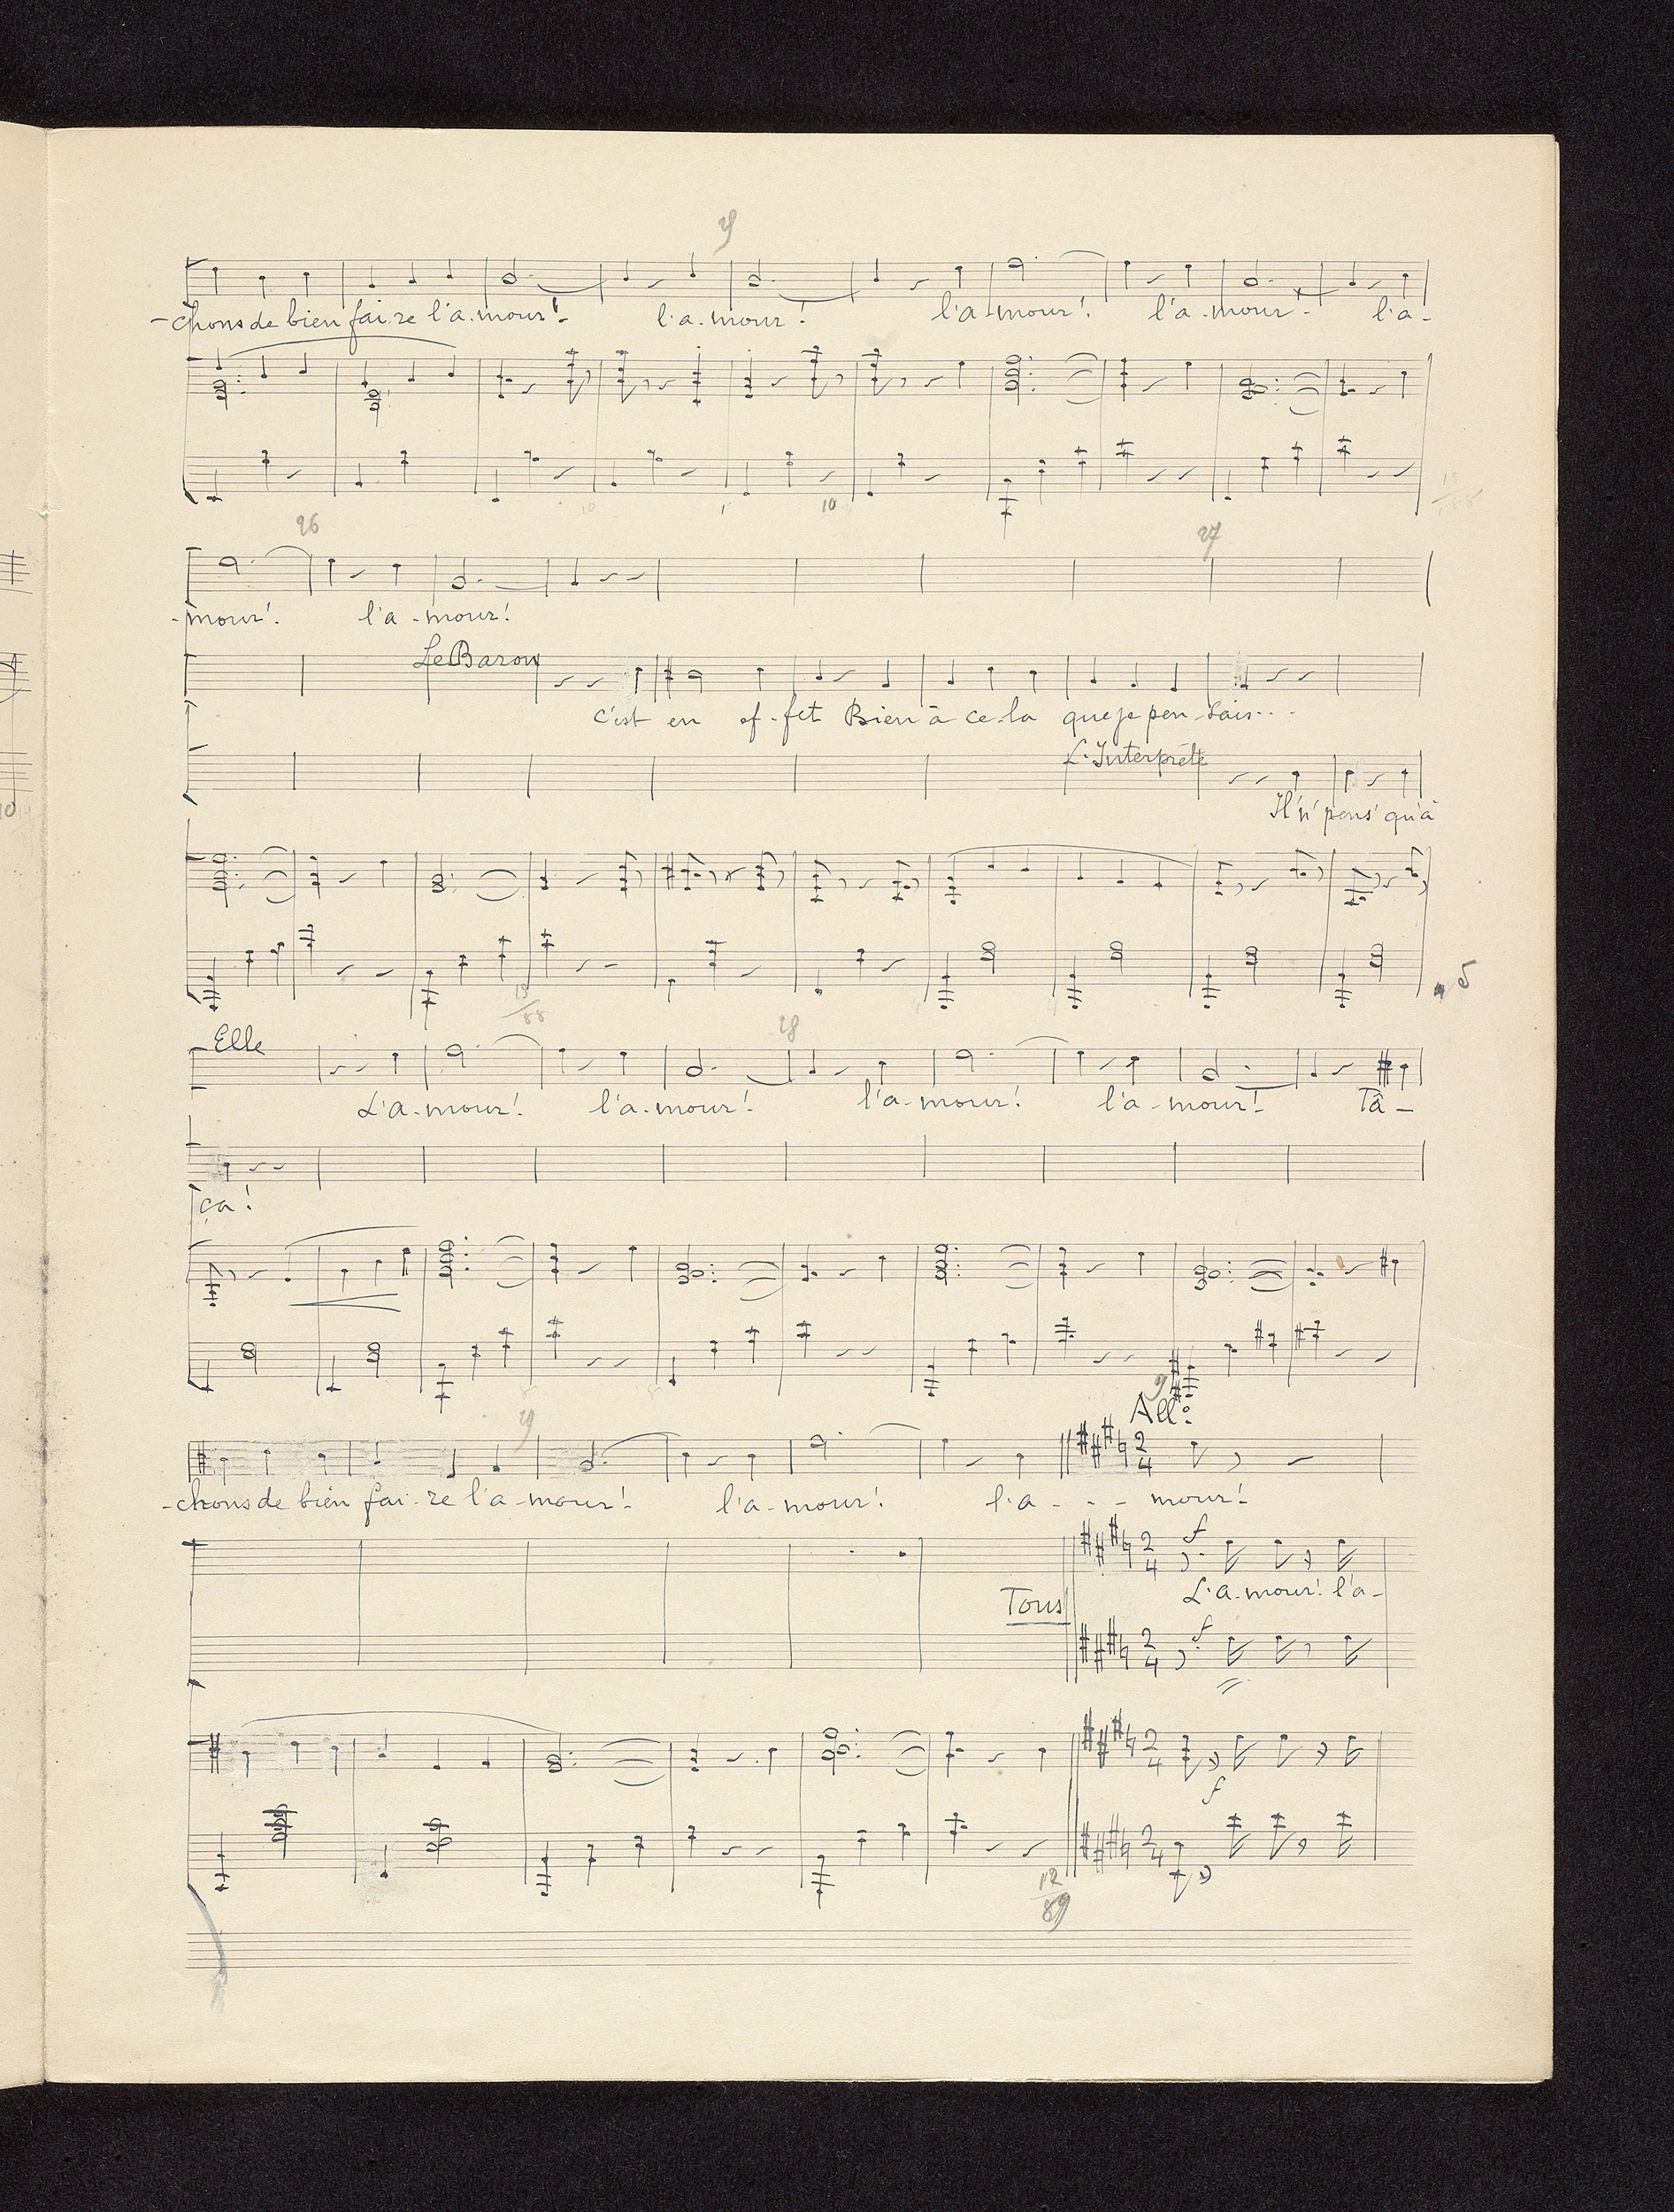 -chons de bien fai-re l'a-mour! l'a-mour! l'a-mour! l'a-mour! l'a-
10 10
26 27
-mour! l'a-mour!
Le Baron
c'est en ef-fet Bien à ce-la que je pen-sais...
L'Interprète
Il n' pens' qu'à
13/88 5
Elle 28
L'a-mour! l'a-mour! l'a-mour! l'a-mour! Tâ-
ça!
29 All°
2/4
-chons de bien fai-re l'a-mour! l'a-mour! l'a- - - mour!
f
2/4
Tous L'a-mour! l'a-
f
2/4
2/4
f
2/4
12/89